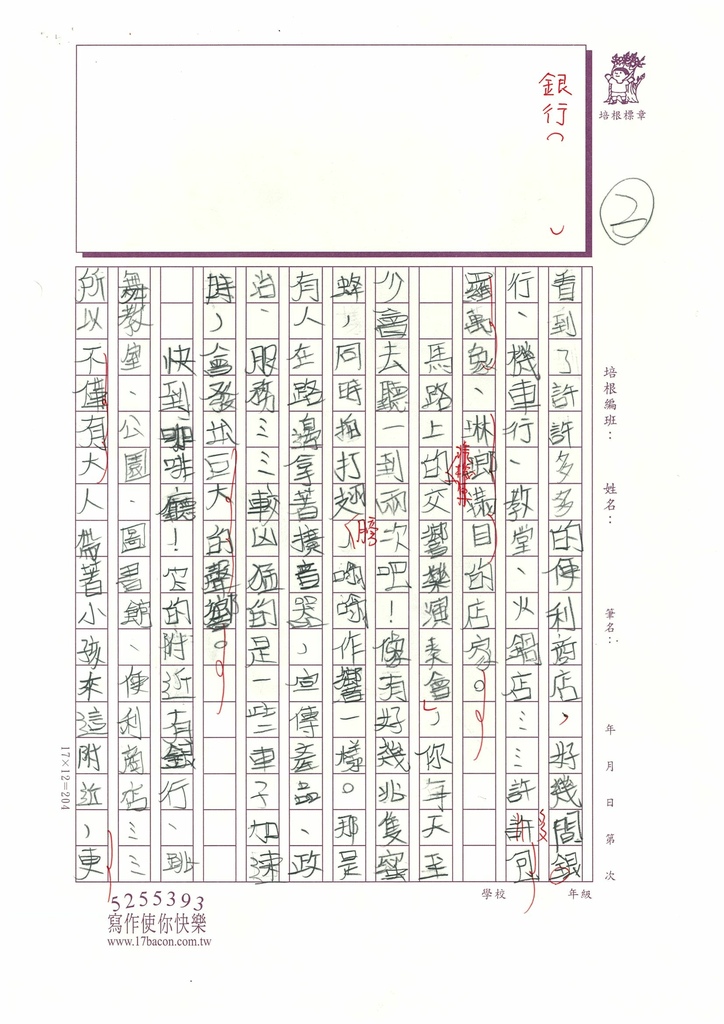 銀行︵ ︶
培根標章
2
培根編班：
姓名：
筆名：
年 月 日 第 次
看到了許許多多的便利商店，好幾間銀
行、機車行、教堂、火鍋店……許許
羅萬象、琳瑯滿目的店家。
馬路上的交響樂演奏會，你每天至
少會去聽一到兩次吧！像有好幾兆隻蜜
蜂，同時拍打翅膀，嗡嗡作響一樣。那是
有人在路邊拿著擴音器，宣傳產品、政
治、服務……較凶猛的是一些車子加速
時，會發出巨大的聲響。
快到咖啡廳！它的附近有銀行、跳
舞教室、公園、圖書館、便利商店……
所以不僅有大人帶著小孩來這附近，更
學校
年級
17×12=204
5255393
寫作使你快樂
www.17bacon.com.tw